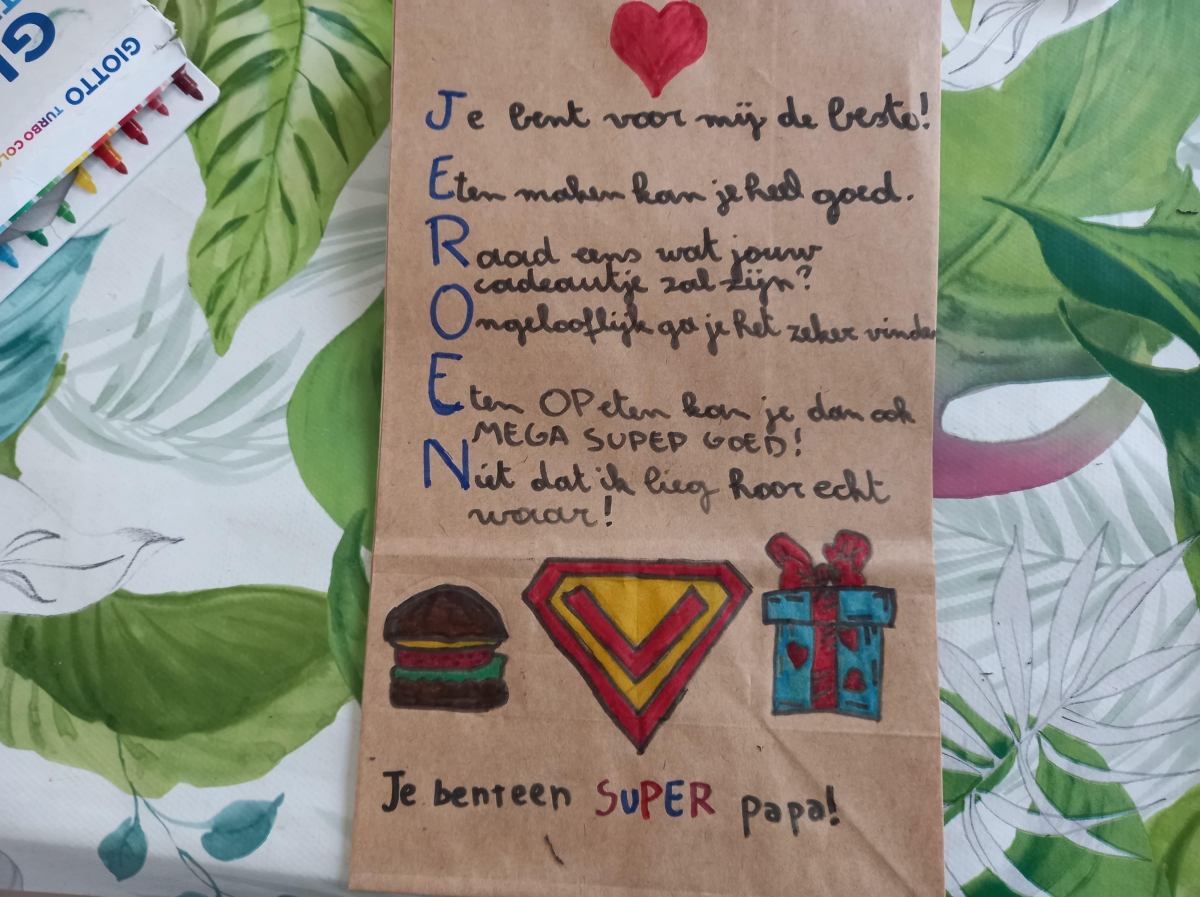 GI
GIOTTO TURBO COLO
Je bent voor mij de beste!
Eten maken kan je heel goed.
Raad eens wat jouw
cadeautje zal zijn?
Ongelooflijk ga je het zeker vinden
Eten OP eten kan je dan ook
MEGA SUPER GOED!
Niet dat ik lieg hoor echt
waar!
V
Je bent een SUPER papa!